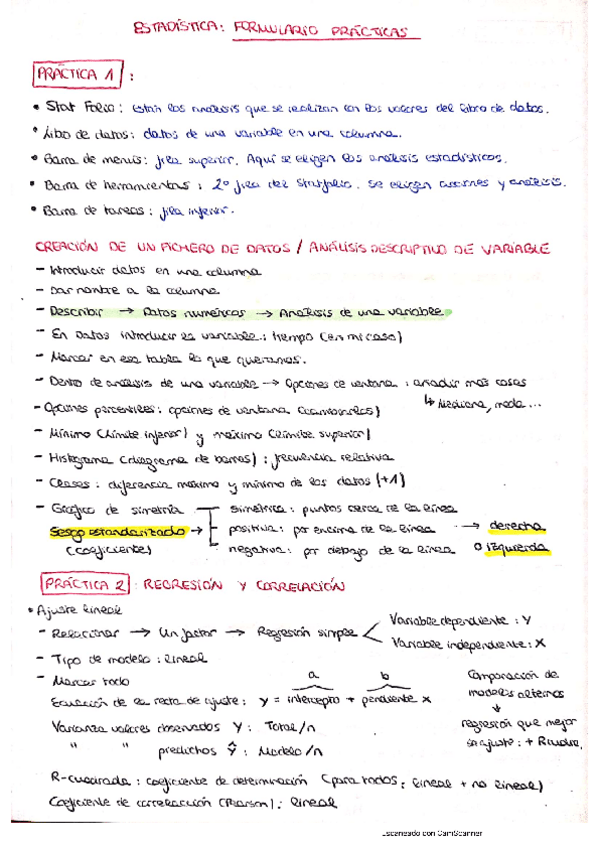 ESTADÍSTICA: FORMULARIO PRÁCTICAS
PRÁCTICA 1 :
• Stat Folio: están los análisis que se realizan con los valores del libro de datos.
• Libro de datos: datos de una variable en una columna.
• Barra de menús: fila superior. Aquí se eligen los análisis estadísticos.
• Barra de herramientas: 2º fila del Statfolio. Se eligen acciones y análisis.
• Barra de tareas: fila inferior.
CREACIÓN DE UN FICHERO DE DATOS / ANÁLISIS DESCRIPTIVO DE VARIABLE
- Introducir datos en una columna
- Dar nombre a la columna
- Describir → Datos numéricos → Análisis de una variable
- En Datos introducir la variable: tiempo (en mi caso)
- Marcar en esa tabla lo que queramos.
- Dentro de análisis de una variable → Opciones de ventana: añadir más cosas
↳ Mediana, moda...
- Opciones percentiles: opciones de ventana (cambiarlos)
- Mínimo (límite inferior) y máximo (límite superior)
- Histograma (diagrama de barras): frecuencia relativa
- Clases: diferencia máximo y mínimo de los datos (+1)
- Gráfico de simetría simétrica: puntos cerca de la línea
Sesgo estandarizado → positiva: por encima de la línea → derecha
(coeficiente) negativa: por debajo de la línea o izquierda
PRÁCTICA 2 REGRESIÓN Y CORRELACIÓN
• Ajuste lineal
- Relacionar → Un factor → Regresión simple < Variable dependiente: Y
Variable independiente: X
- Tipo de modelo: lineal
- Marcar todo
a b
Ecuación de la recta de ajuste: y = intercepto + pendiente x
Comparación de modelos alternos
↓
regresión que mejor se ajuste: +
Varianza valores observados Y: Total/n
" " predichos Ŷ: Modelo/n
R-cuadrada: coeficiente de determinación (para todos: lineal + no lineal)
Coeficiente de correlación (Pearson): lineal
Escaneado con CamScanner